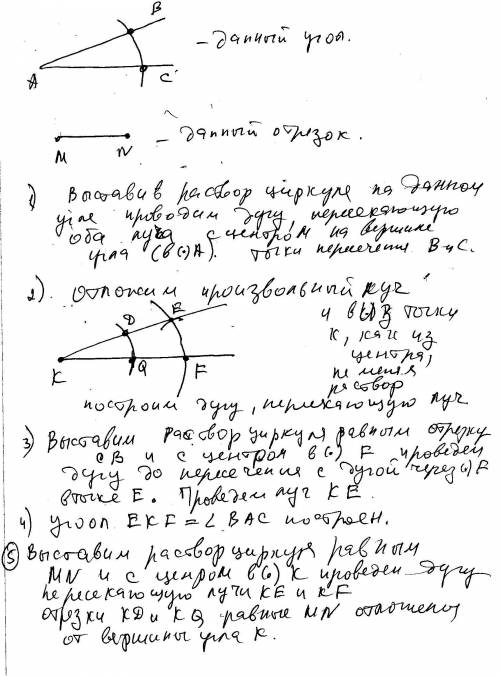 B
A
C
– данный угол.
M N – данный отрезок.
1) Выставив раствор циркуля на данном
угле проводим дугу, пересекающую
оба луча с центром на вершине
угла (в (·) A). Точки пересечения B и C.
2). Отложим произвольный луч
D E
K Q F
и из точки
K, как из
центра,
не меняя
раствор
построим дугу, пересекающую луч
3) Выставим раствор циркуля равным отрезку
CB и с центром в (·) F проведем
дугу до пересечения с дугой через (·) F
в точке E. Проведем луч KE.
4) угол EKF = ∠ BAC построен.
5) Выставим раствор циркуля равным
MN и с центром в (·) K проведем дугу
пересекающую лучи KE и KF
отрезки KD и KQ равные MN отложены
от вершины угла K.